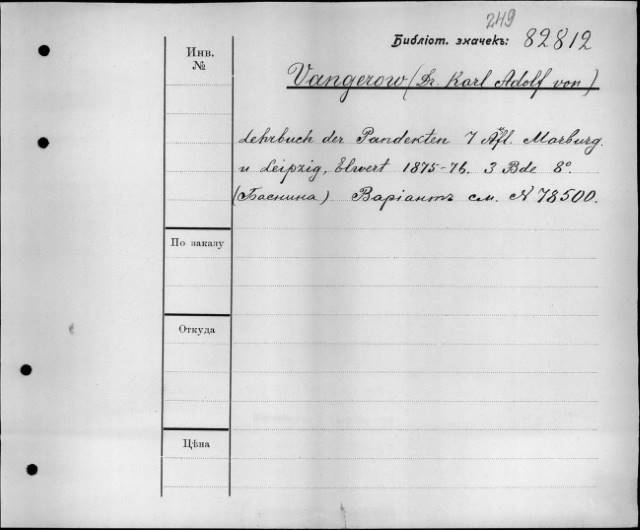 249
Библіот. значекъ: 82812
Инв.
№
Vangerow (Dr. Karl Adolf von)
Lehrbuch der Pandekten 7 Aufl. Marburg.
u Leipzig, Elwert 1875-76. 3 Bde 8°.
(Баснина) Варіантъ см. N 78500.
По заказу
Откуда
Цѣна